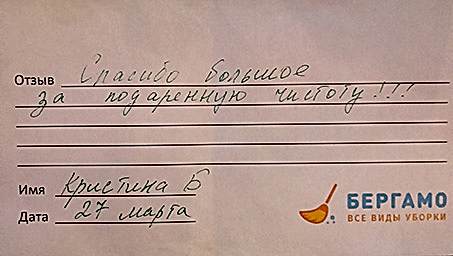 Отзыв Спасибо большое
за подаренную чистоту!!!
Имя Кристина Б
Дата 27 марта
БЕРГАМО
ВСЕ ВИДЫ УБОРКИ